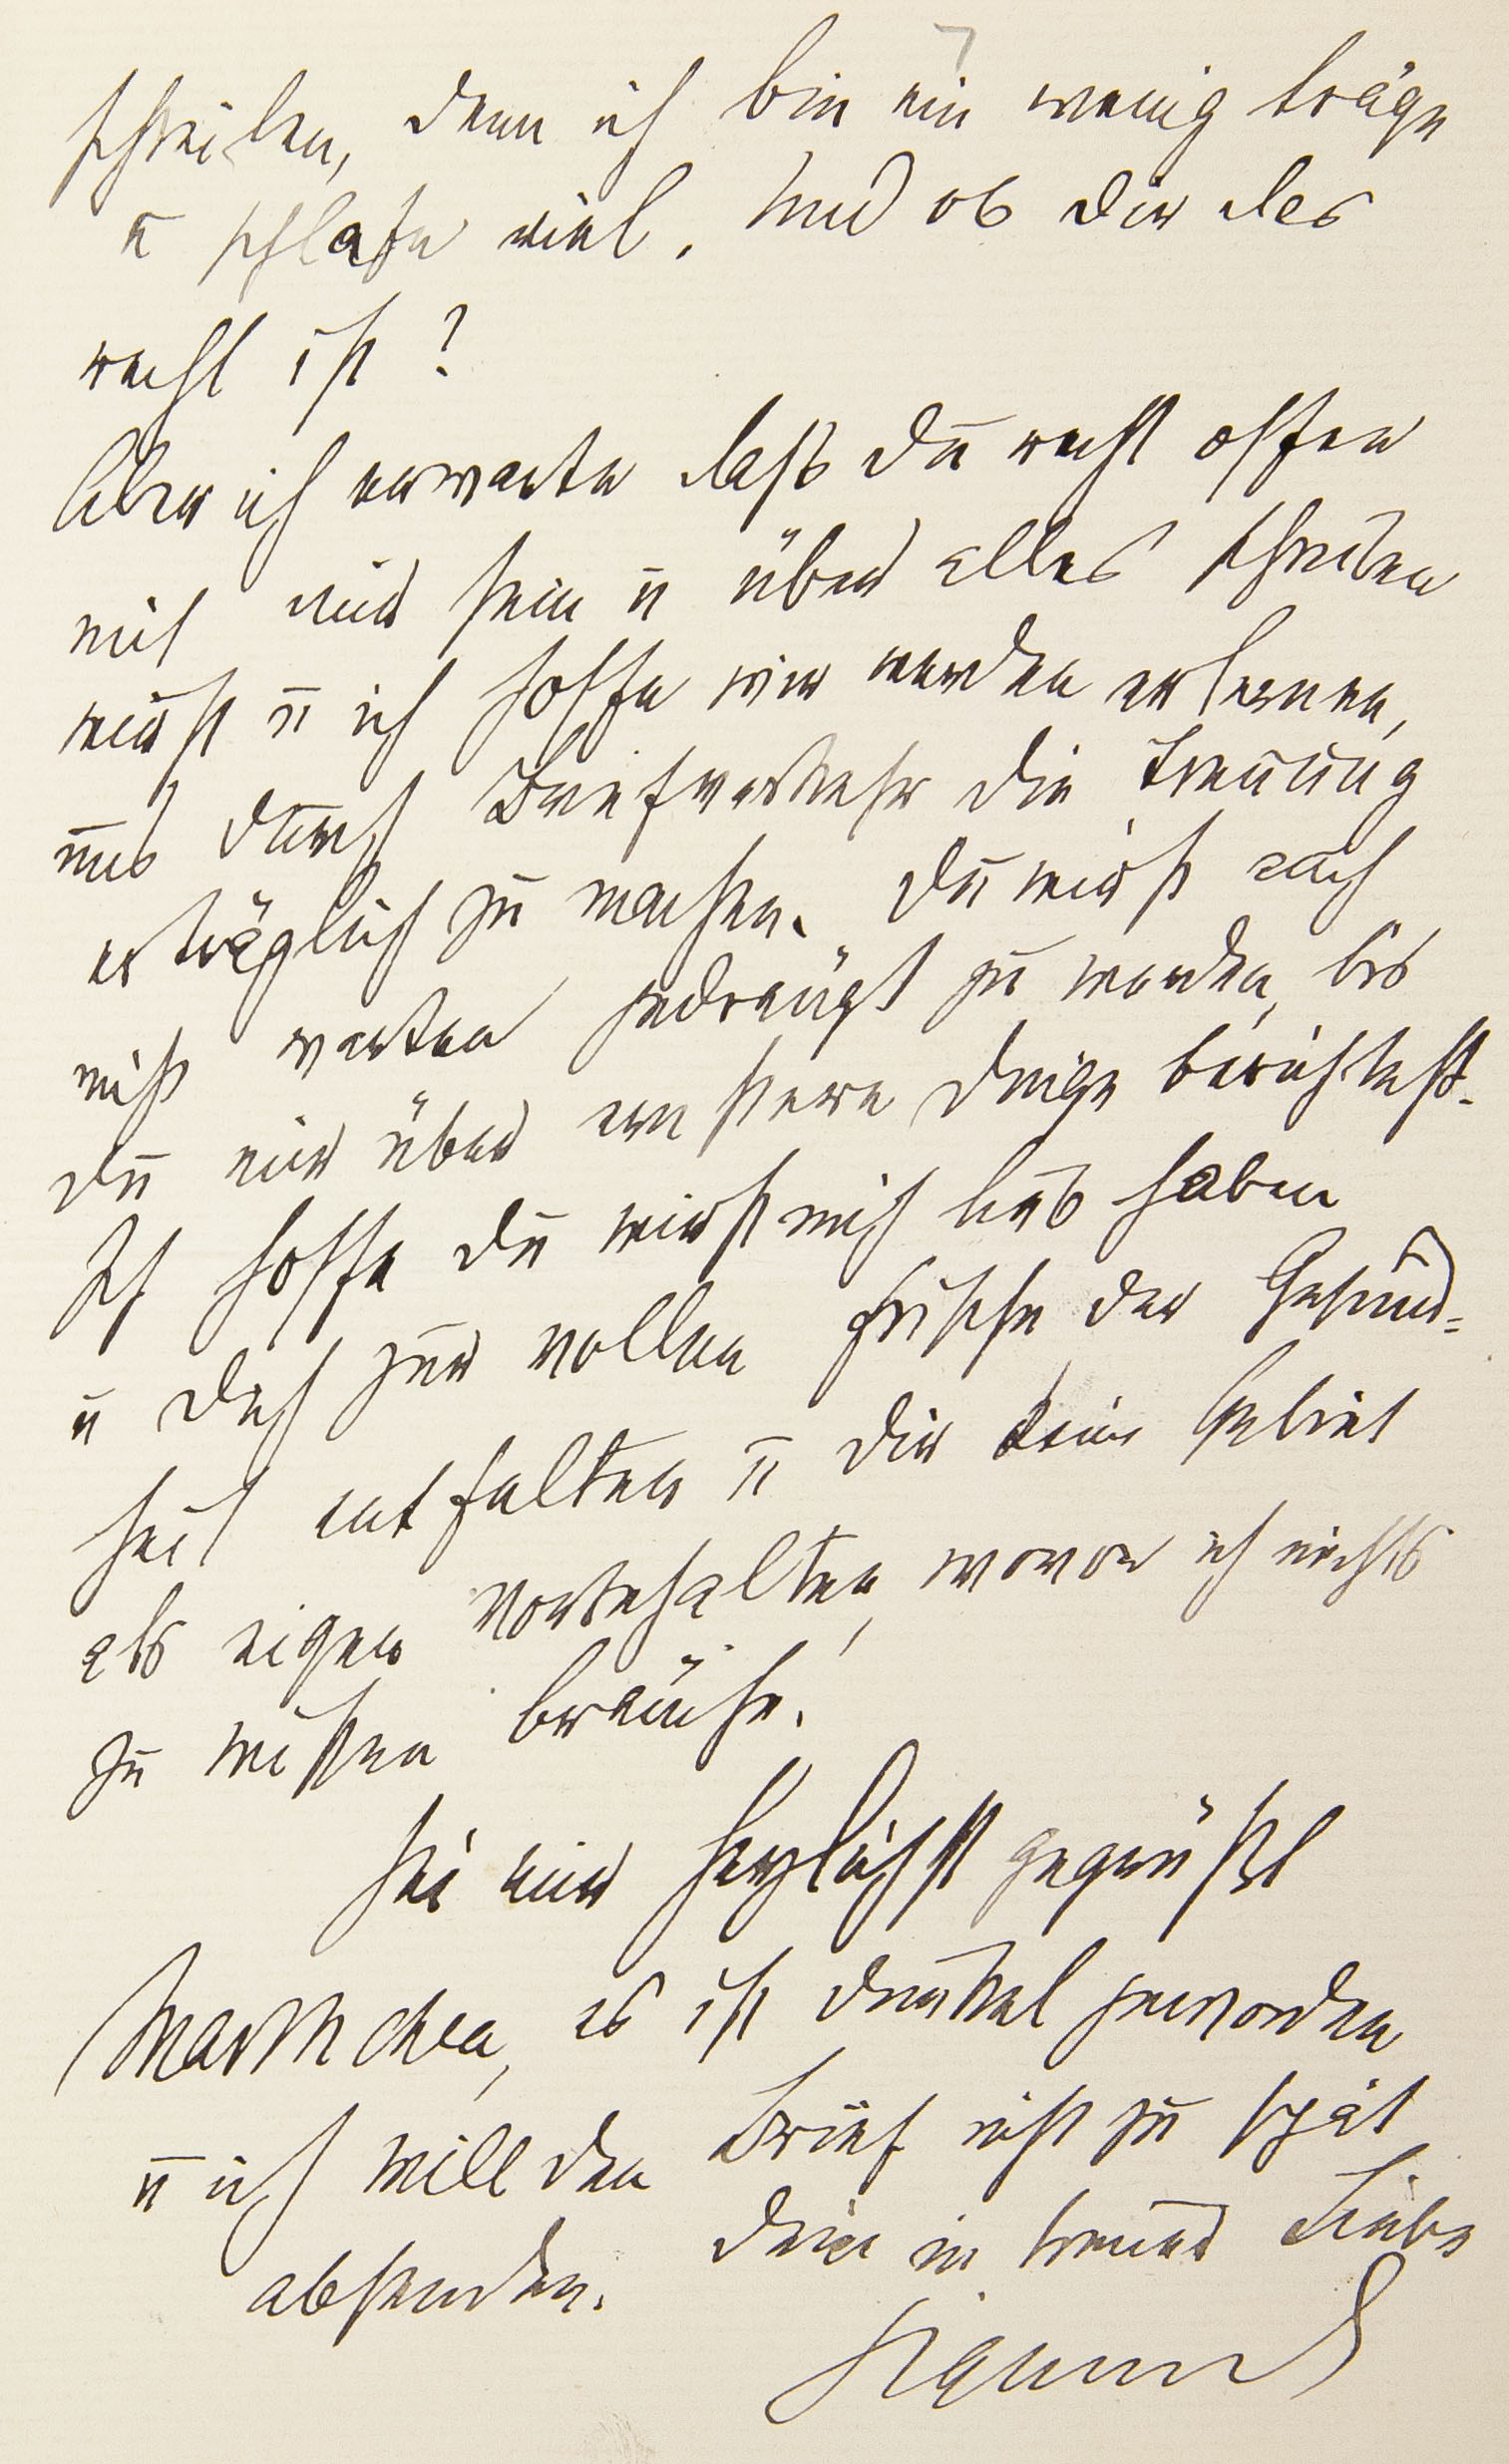 7
schreiben, denn ich bin ein wenig träge
u schlafe viel. Und ob dir das
recht ist?
Aber ich erwarte daß du recht offen
mit mir sein u über alles schreiben
wirst u ich hoffe wir werden erlernen,
uns durch Briefverkehr die Trennung
erträglich zu machen. Du wirst auch
nicht warten gedrängt zu werden, bis
du mir über ernstere Dinge berichtest.
Ich hoffe du wirst mich lieb haben
u dich zur vollen Frische der Gesund-
heit entfalten u dir kein Gebiet
als eigen vorbehalten, wovon ich nichts
zu wissen bräuchte.
Sei mir herzlichst gegrüßt
Marthchen, es ist dunkel geworden
u ich will den Brief nicht zu spät
absenden. Dein in treuer Liebe
Sigmund